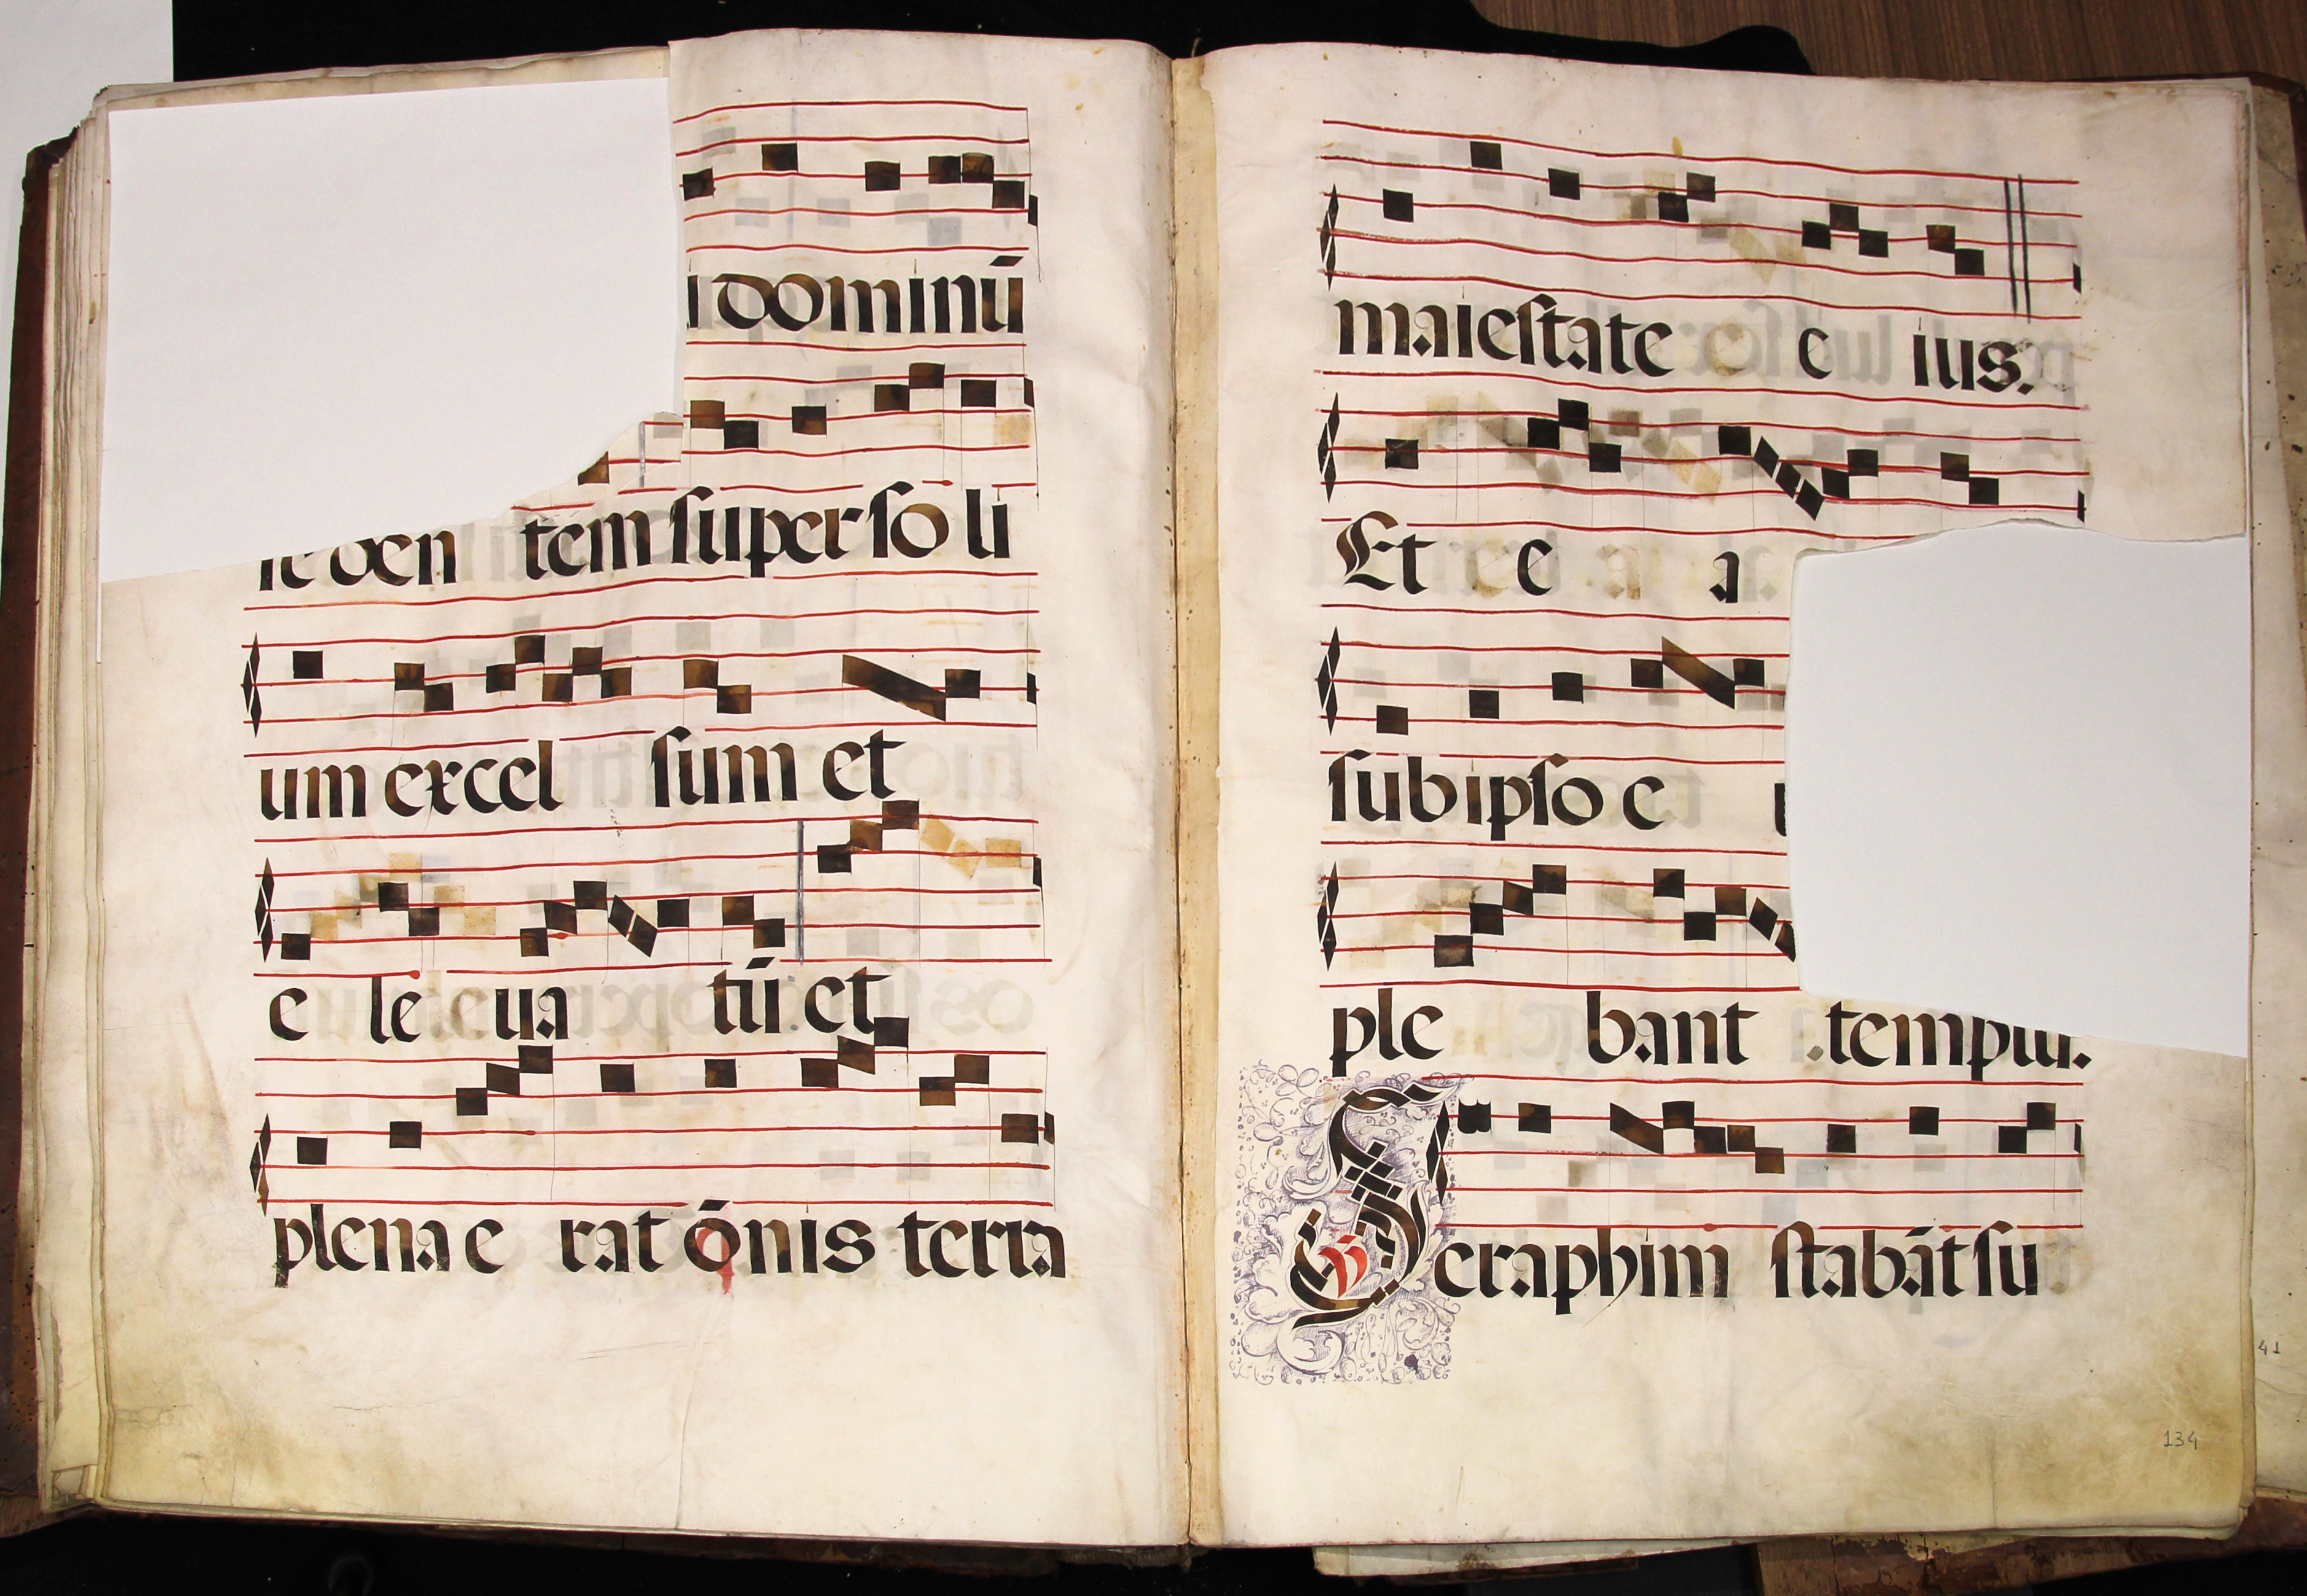 i dominū
se den tem super so li
um excel sum et
e le. e ua tū. et
plena e rat ōnis terra
maiestate e ius.
Et e a
sub ipso e
ple bant .templū.
Seraphim stabāt su
134
41